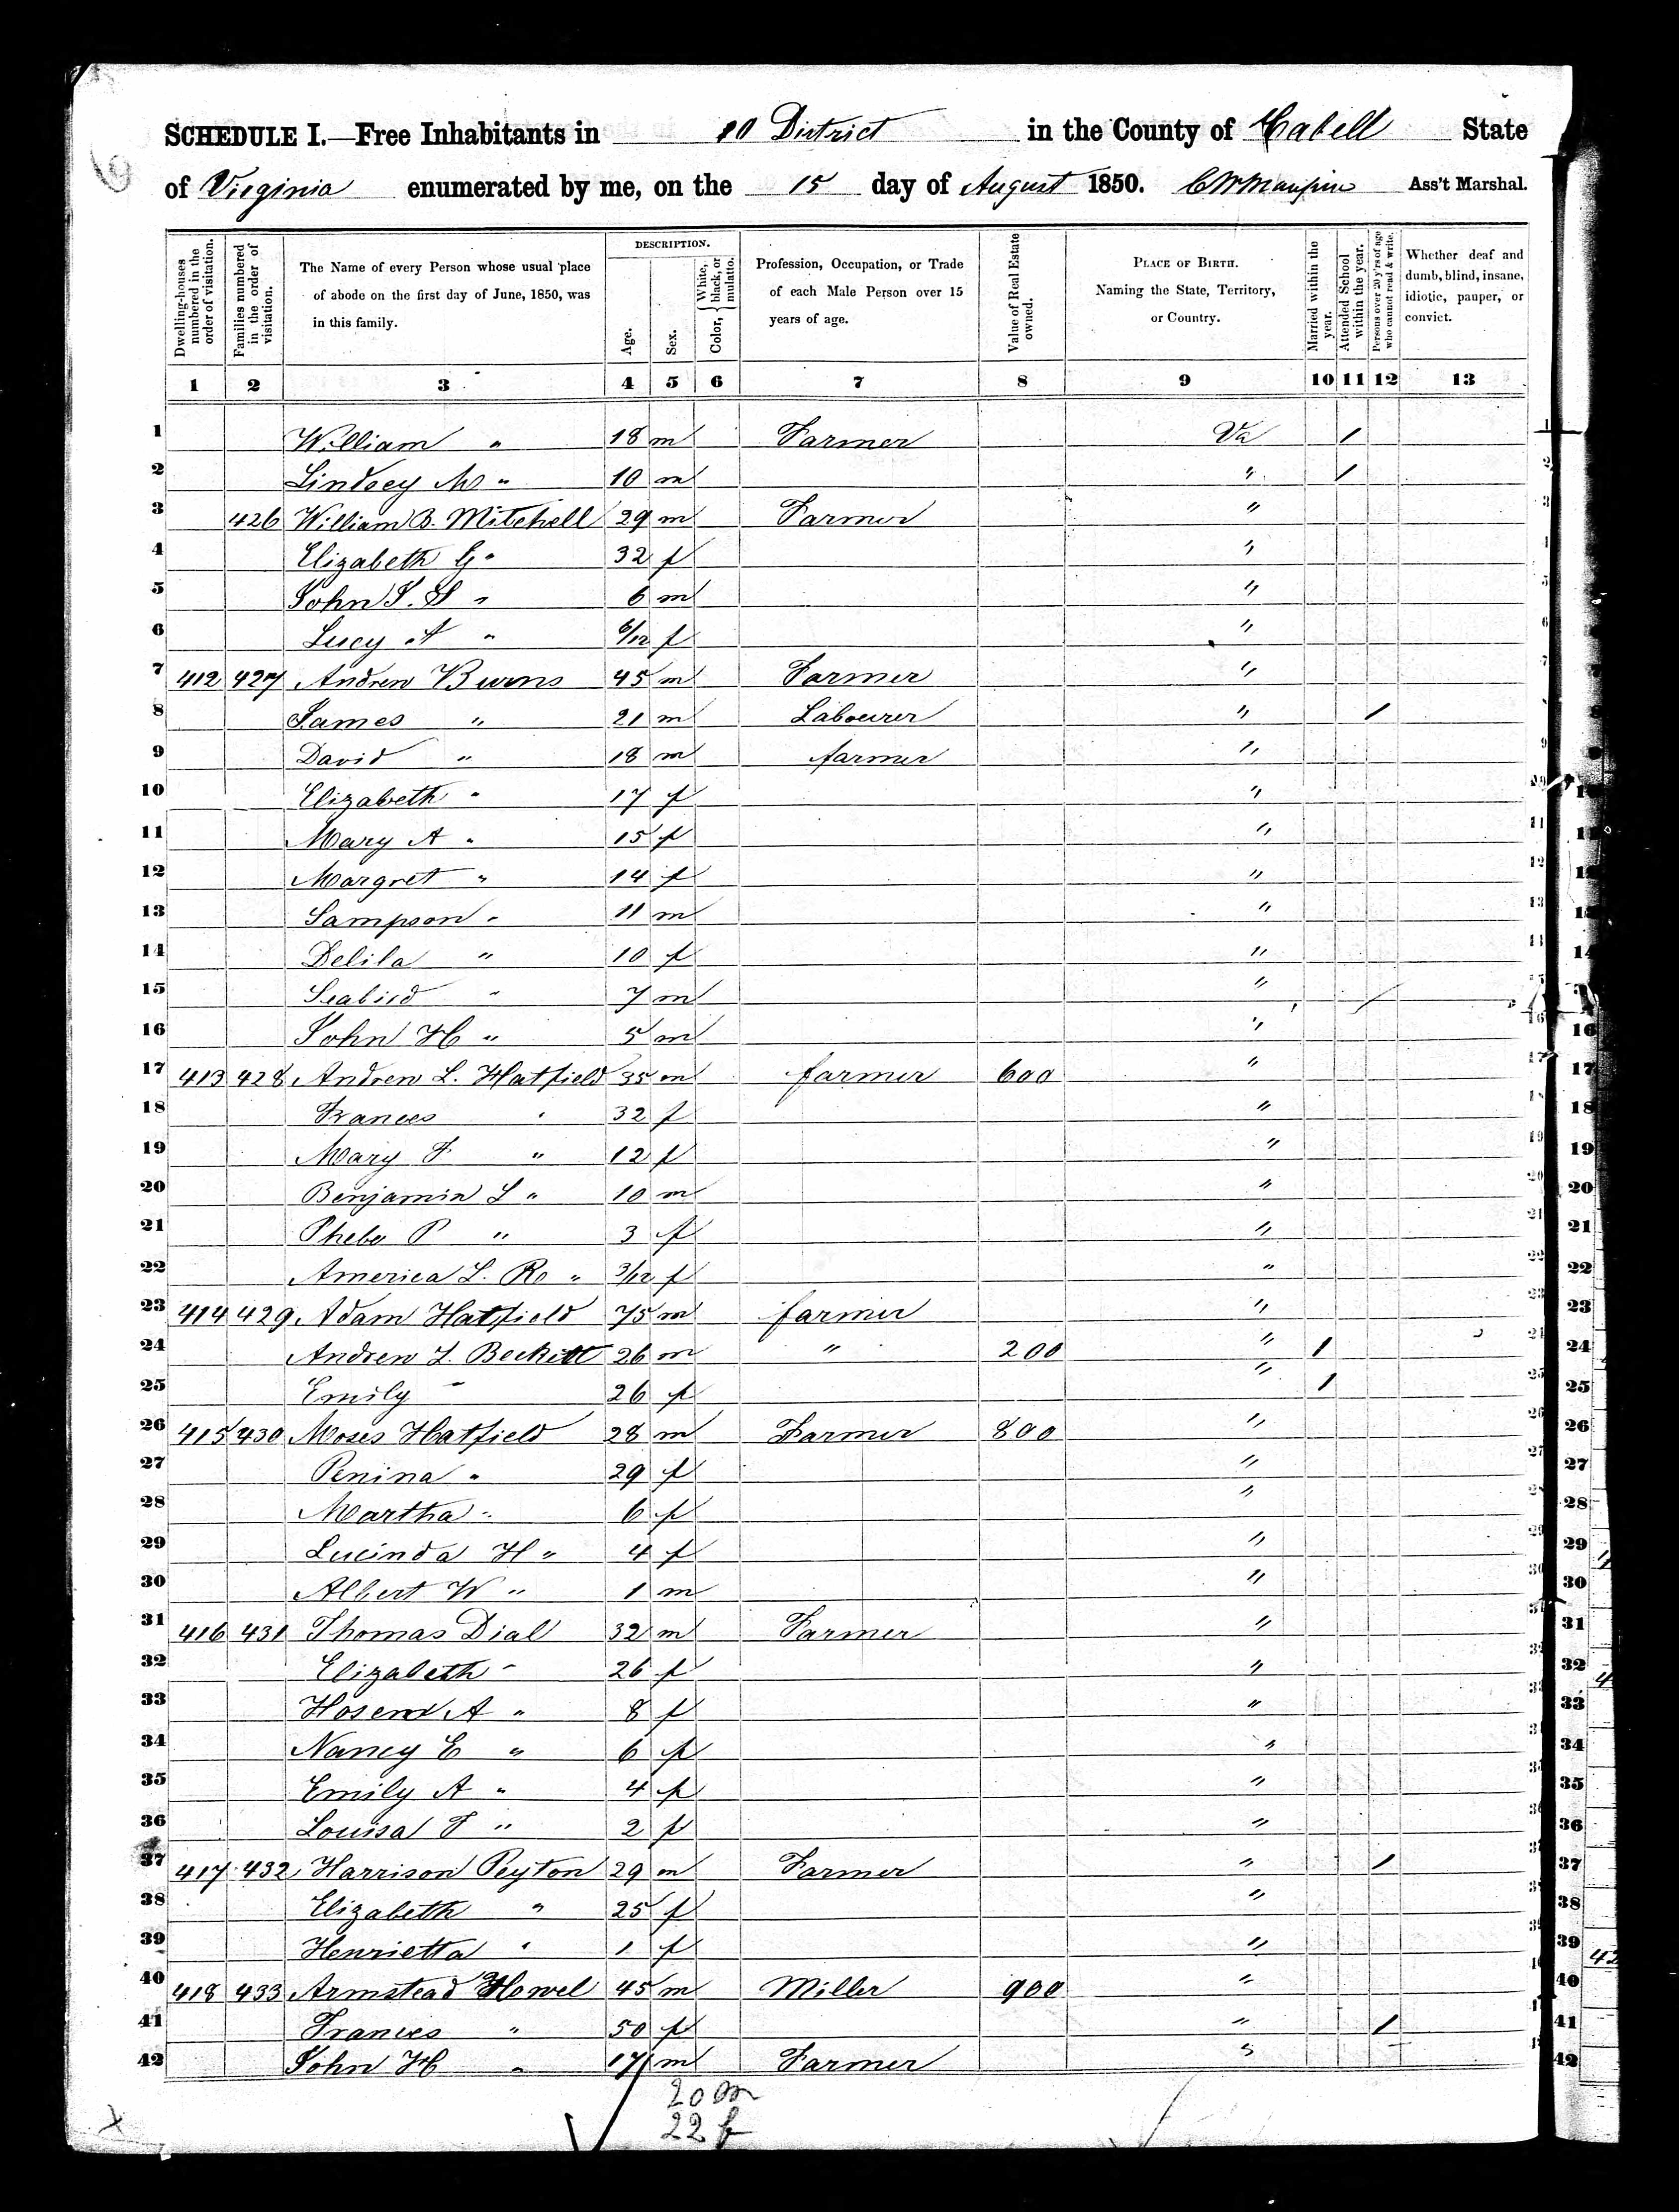 SCHEDULE I.—Free Inhabitants in 10 District in the County of Cabell State
of Virginia enumerated by me, on the 15 day of August 1850. C W Maupin Ass't Marshal.
Dwelling-houses numbered in the order of visitation.
Families numbered in the order of visitation.
The Name of every Person whose usual place of abode on the first day of June, 1850, was in this family.
DESCRIPTION.
Age.
Sex.
Color, { White, black, or mulatto.
Profession, Occupation, or Trade of each Male Person over 15 years of age.
Value of Real Estate owned.
PLACE OF BIRTH. Naming the State, Territory, or Country.
Married within the year.
Attended School within the year.
Persons over 20 y'rs of age who cannot read & write.
Whether deaf and dumb, blind, insane, idiotic, pauper, or convict.
1 2 3 4 5 6 7 8 9 10 11 12 13
1 William " 18 m Farmer Va / 1
2 Lindsey M " 10 m " / 2
3 426 William B. Mitchell 29 m Farmer " 3
4 Elizabeth G " 32 f " 4
5 John S. " 6 m " 5
6 Lucy A " 6/12 f " 6
7 412 427 Andrew Burns 45 m Farmer " 7
8 James " 21 m Labourer " / 8
9 David " 18 m farmer " 9
10 Elizabeth " 17 f " 10
11 Mary A " 15 f " 11
12 Margret " 14 f " 12
13 Sampson " 11 m " 13
14 Delila " 10 f " 14
15 Seabird " 7 m " 15
16 John H " 5 m " 16
17 413 428 Andrew L. Hatfield 35 m farmer 600 " 17
18 Frances " 32 f " 18
19 Mary F " 12 f " 19
20 Benjamin L " 10 m " 20
21 Phebe P " 3 f " 21
22 America L. R " 3/12 f " 22
23 414 429 Adam Hatfield 75 m farmer " 23
24 Andrew L. Beckett 26 m " 200 " / 24
25 Emily " 26 f " / 25
26 415 430 Moses Hatfield 28 m Farmer 800 " 26
27 Penina " 29 f " 27
28 Martha " 6 f " 28
29 Lucinda H " 4 f " 29
30 Albert W " 1 m " 30
31 416 431 Thomas Dial 32 m Farmer " 31
32 Elizabeth " 26 f " 32
33 A " 8 f " 33
34 Nancy E " 6 f " 34
35 Emily A " 4 f " 35
36 Louisa F " 2 f " 36
37 417 432 Harrison Peyton 29 m Farmer " / 37
38 Elizabeth " 25 f " 38
39 Henrietta " 1 f " 39
40 418 433 Armstead Howel 45 m Miller 900 " 40
41 Frances " 50 f " / 41
42 John H " 17 m Farmer " 42
20 m
22 f